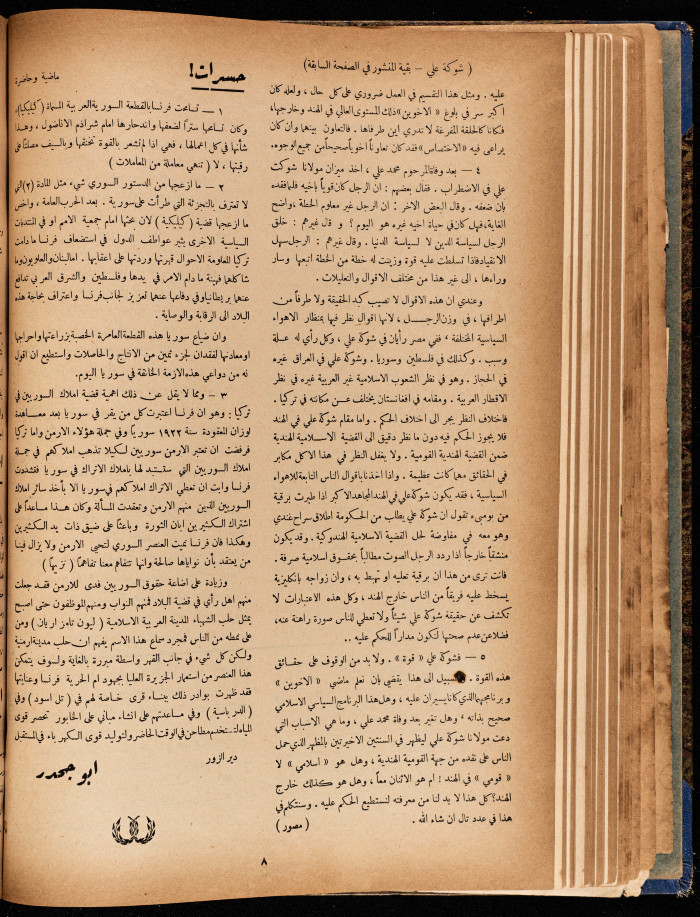 ( شوكة علي – بقية المنشور في الصفحة السابقة )
عليه . ومثل هذا التقسيم في العمل ضروري على كل حال ، ولعله كان
اكبر سر في بلوغ « الاخوين » ذلك المستوى العالي في الهند وخارجها ،
فكانا كالحلقة المفرغة لا ندري اين طرفاها . فالتعاون بينهما وان كان
يراعى فيه « الاختصاص » فقد كان تعاوناً اخوياً صحيحاً من جميع الوجوه .
٤ – بعد وفاة المرحوم محمد علي ، اخذ ميزان مولانا شوكت
علي في الاضطراب . فقال بعضهم : ان الرجل كان قوياً باخيه فلما فقده
بان ضعفه . وقال البعض الاخر : ان الرجل غير معلوم الخطة ، واضح
الغاية ، فهل كان في حياة اخيه غيره هو اليوم ؟ و قال غيرهم : خلق
الرجل لسياسة الدين لا لسياسة الدنيا . وقال غيرهم : الرجل سهل
الانقياد فاذا تسلطت عليه قوة وزينت له خطة من الخطة اتبعها وسار
وراءها ، الى غير هذا من مختلف الاقوال والتعليلات .
وعندي ان هذه الاقوال لا تصيب كبد الحقيقة ولا طرفاً من
اطرافها ، في وزن الرجل ، لانها اقوال نظر فيها بمنظار الاهواء
السياسية المختلفة ، ففي مصر رأيان في شوكة علي ، وكل رأي له علة
وسبب . وكذلك في فلسطين وسوريا . وشوكة علي في العراق غيره
في الحجاز . وهو في نظر الشعوب الاسلامية غير العربية غيره في نظر
الاقطار العربية . ومقامه في افغانستان يختلف عن مكانته في تركيا .
فاختلاف النظر يجر الى اختلاف الحكم . واما مقام شوكة علي في الهند
فلا يجوز الحكم فيه دون ما نظر دقيق الى القضية الاسلامية الهندية
ضمن القضية الهندية القومية . ولا يغفل النظر في هذا الاكل مكابر
في الحقائق مهما كانت عظيمة . واذا اخذنا باقوال الناس التابعة للاهواء
السياسية ، فقد يكون شوكة علي في الهند المجاهد الاكبر اذا طيرت برقية
من بومبىء تقول ان شوكة علي يطلب من الحكومة اطلاق سراح غندي
وهو معه في مفاوضة لحل القضية الاسلامية الهندوكية . وقد يكون
منشقاً خارجاً اذا ردد الرجل الصوت مطالباً بحقوق اسلامية صرفة .
فانت ترى من هذا ان برقية تعليه او تهبط به ، وان زواجه بانكليزية
يسخط عليه فريقاً من الناس خارج الهند ، وكل هذه الاعتبارات لا
تكشف عن حقيقة شوكة علي شيئاً ولا تعطي للناس صورة راهنة عنه ،
فضلاعن عدم صحتها لتكون مداراً للحكم عليه . .
٥ – فشوكة علي « قوة » . ولا بد من الوقوف على حقائق
هذه القوة . والسبيل الى هذا يقضي بان نعلم ماضي « الاخوين »
وبرنامجهما الذي كانا يسيران عليه ، وهل هذا البرنامج السياسي الاسلامي
صحيح بذاته ، وهل تغير بعد وفاة محمد علي ، وما هي الاسباب التي
دعت مولانا شوكة علي ليظهر في السنتين الاخيرتين بالمظهر الذي حمل
الناس على نقده من جهة القومية الهندية ، وهل هو « اسلامي » لا
« قومي » في الهند : ام هو الاثنان معاً ، وهل هو كذلك خارج
الهند ؟ كل هذا لا بد لنا من معرفته لنستطيع الحكم عليه . وسنتكلم في
هذا في عدد تال ان شاء الله .
( مصور )
حسرات !
ماضية وحاضرة
١ – تسامحت فرنسا بالقطعة السورية العربية المسماة ( كيليكيا )،
وكان تسامحها ستراً لضعفها واندحارها امام شراذم الاناضول ، وهذا
شأنها في كل اعمالها ، فهي اذا لم تشعر بالقوة تخنقها وبالسيف مصلتاً على
رقبتها ، لا ( تنهي معاملة من المعاملات )
٢ – ما ازعجها من الدستور السوري شيء مثل المادة (٢) التي
لا تعترف بالتجزئة التي طرأت على سورية . بعد الحرب العامة ، واخص
ما ازعجها قضية ( كيليكية ) لان بحثها امام جمعية الامم او في المنتديات
السياسية الاخرى يثير عواطف الدول في استضعاف فرنسا ما دامت
تركيا المعلومة الاحوال قهرتها وردتها على اعقابها . اما لبنان والعلويون وما
شاكلها فهينة ما دام الامر في يدها وفلسطين والشرق العربي تدافع
عنهما بريطانيا وفي دفاعها عنها تعزيز لجانب فرنسا واعتراف بحاجة هذه
البلاد الى الرقابة والوصاية .
وان ضياع سوريا هذه القطعة العامرة الخصبة بزراعتها واحراجها
او معادنها لفقدان لجزء ثمين من الانتاج والحاصلات واستطيع ان اقول
انه من دواعي هذه الازمة الخانقة في سوريا اليوم .
٣ – ومما لا يقل عن ذلك اهمية قضية املاك السوريين في
تركيا : وهو ان فرنسا اعتبرت كل من يقر في سوريا بعد معاهدة
لوزان المعقودة سنة ١٩٢٣ سورياً وفي جملة هؤلاء الارمن واما تركيا
فرفضت ان تعتبر الارمن سوريين لكيلا تذهب املاكهم في جملة
املاك السوريين التي ستستبد لها باملاك الاتراك في سوريا فتشددت
فرنسا وابت ان تعطي الاتراك املاكهم في سوريا الا بأخذ سائر املاك
السوريين الذين منهم الارمن وتعقدت المسألة وكان هذا مساعداً على
اشتراك الكثيرين ابان الثورة وباعثاً على ضيق ذات يد الكثيرين
وهكذا فان فرنسا تميت العنصر السوري لتحيي الارمن ولا يزال فينا
من يعتقد بأن نواياها صالحة وانها تتفاهم معنا تفاهماً ( نزيهاً )
وزيادة على اضاعة حقوق السوريين فدى للارمن فقد جعلت
منهم اهل رأي في قضية البلاد فمنهم النواب ومنهم الموظفون حتى اصبح
يمثل حلب الشهباء المدينة العربية الاسلامية ( ليون تامزاربان ) ومن
على نمطه من الناس فمجرد سماع هذا الاسم يفهم ان حلب مدينة ارمنية
ولكن كل شيء في جانب القهر واسطة مبررة بالغاية ولسوف يتمكن
هذا العنصر من استعمار الجزيرة العليا بمجهود ام الحرية فرنسا وعنايتها
فقد ظهرت بوادر ذلك ببناء قرى خاصة لهم في ( تل اسود ) وفي
( الدرباسية ) وفي مساعدتهم على انشاء مباني على الخابور تحصر قوى
المياه لتستخدم مطاحن في الوقت الحاضر ولتوليد قوى الكهرباء في المستقبل
دير الزور
ابو جحدر
٨